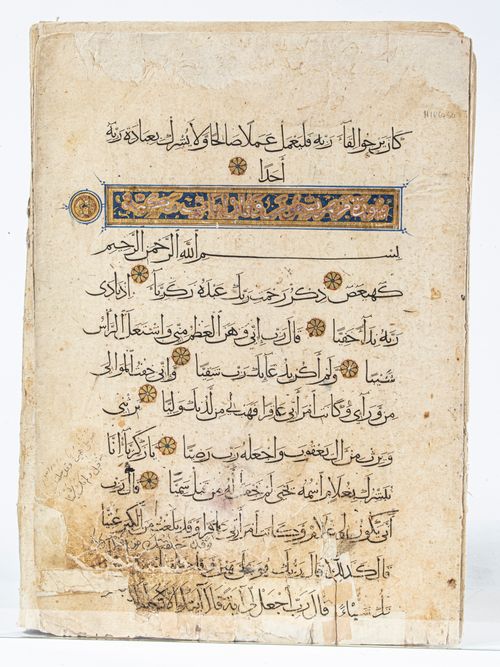 كان يرجوا لقاء ربه فليعمل عملا صالحا ولا يشرك بعبادة ربه
أحدا
سورة مريم
بسم الله الرحمن الرحيم
كهيعص ذكر رحمت ربك عبده زكريا إذ نادى
ربه نداء خفيا قال رب إني وهن العظم مني واشتعل الرأس
شيبا ولم أكن بدعائك رب شقيا وإني خفت الموالي
من وراءي وكانت امرأتي عاقرا فهب لي من لدنك وليا يرثني
ويرث من آل يعقوب واجعله رب رضيا يا زكريا إنا
نبشرك بغلام اسمه يحيى لم نجعل له من قبل سميا قال رب
أنى يكون لي غلام وكانت امرأتي عاقرا وقد بلغت من الكبر عتيا
وقد خلقتك من قبل
قال كذلك قال ربك هو علي هين
تك شيئا قال رب اجعل لي آية قال آيتك ألا تكلم